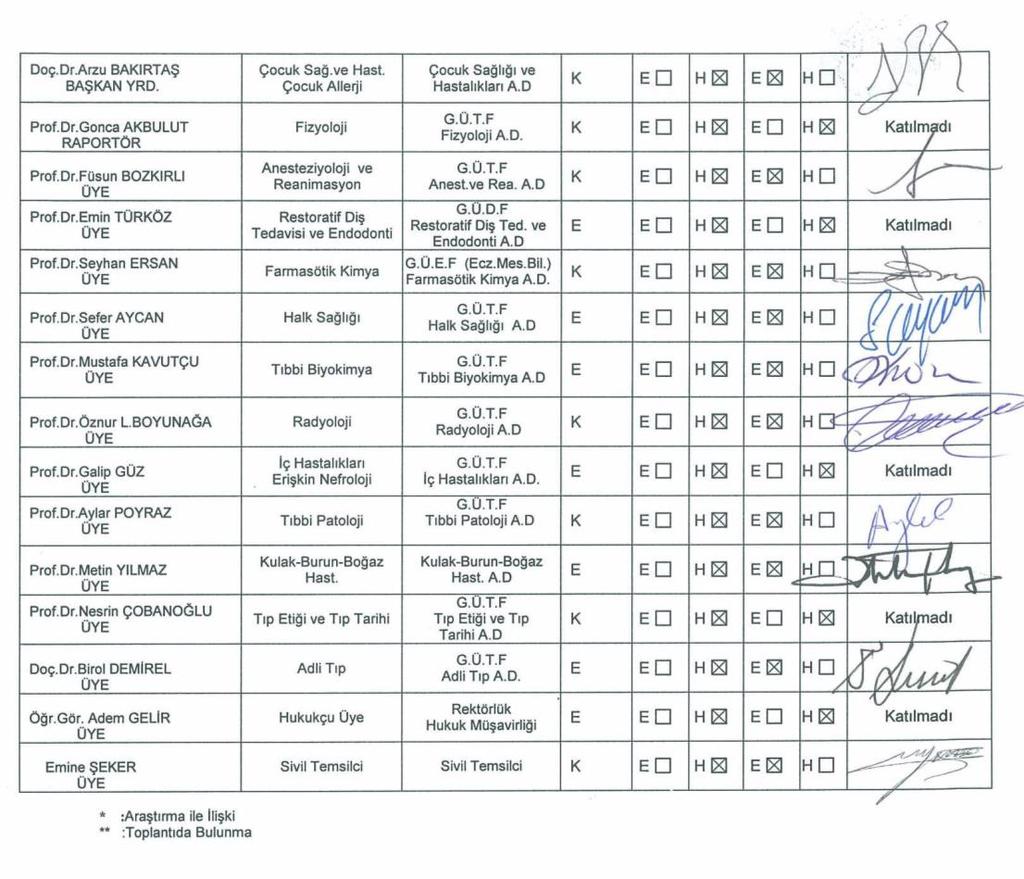 Doç.Dr.Arzu BAKIRTAŞ
BAŞKAN YRD.
Çocuk Sağ.ve Hast.
Çocuk Allerji
Çocuk Sağlığı ve
Hastalıkları A.D
K
E☐ H☒ E☒ H☐
Prof.Dr.Gonca AKBULUT
RAPORTÖR
Fizyoloji
G.Ü.T.F
Fizyoloji A.D.
K
E☐ H☒ E☐ H☒
Katılmadı
Prof.Dr.Füsun BOZKIRLI
ÜYE
Anesteziyoloji ve
Reanimasyon
G.Ü.T.F
Anest.ve Rea. A.D
K
E☐ H☒ E☒ H☐
Prof.Dr.Emin TÜRKÖZ
ÜYE
Restoratif Diş
Tedavisi ve Endodonti
G.Ü.D.F
Restoratif Diş Ted. ve
Endodonti A.D
E
E☐ H☒ E☐ H☒
Katılmadı
Prof.Dr.Seyhan ERSAN
ÜYE
Farmasötik Kimya
G.Ü.E.F (Ecz.Mes.Bil.)
Farmasötik Kimya A.D.
K
E☐ H☒ E☒ H☐
Prof.Dr.Sefer AYCAN
ÜYE
Halk Sağlığı
G.Ü.T.F
Halk Sağlığı A.D
E
E☐ H☒ E☒ H☐
Prof.Dr.Mustafa KAVUTÇU
ÜYE
Tıbbi Biyokimya
G.Ü.T.F
Tıbbi Biyokimya A.D
E
E☐ H☒ E☒ H☐
Prof.Dr.Öznur L.BOYUNAĞA
ÜYE
Radyoloji
G.Ü.T.F
Radyoloji A.D
K
E☐ H☒ E☒ H☐
Prof.Dr.Galip GÜZ
ÜYE
İç Hastalıkları
Erişkin Nefroloji
G.Ü.T.F
İç Hastalıkları A.D.
E
E☐ H☒ E☐ H☒
Katılmadı
Prof.Dr.Aylar POYRAZ
ÜYE
Tıbbi Patoloji
G.Ü.T.F
Tıbbi Patoloji A.D
K
E☐ H☒ E☒ H☐
Prof.Dr.Metin YILMAZ
ÜYE
Kulak-Burun-Boğaz
Hast.
Kulak-Burun-Boğaz
Hast. A.D
E
E☐ H☒ E☒ H☐
Prof.Dr.Nesrin ÇOBANOĞLU
ÜYE
Tıp Etiği ve Tıp Tarihi
G.Ü.T.F
Tıp Etiği ve Tıp
Tarihi A.D
K
E☐ H☒ E☐ H☒
Katılmadı
Doç.Dr.Birol DEMİREL
ÜYE
Adli Tıp
G.Ü.T.F
Adli Tıp A.D.
E
E☐ H☒ E☒ H☐
Öğr.Gör. Adem GELİR
ÜYE
Hukukçu Üye
Rektörlük
Hukuk Müşavirliği
E
E☐ H☒ E☐ H☒
Katılmadı
Emine ŞEKER
ÜYE
Sivil Temsilci
Sivil Temsilci
K
E☐ H☒ E☒ H☐
* :Araştırma ile İlişki
** :Toplantıda Bulunma